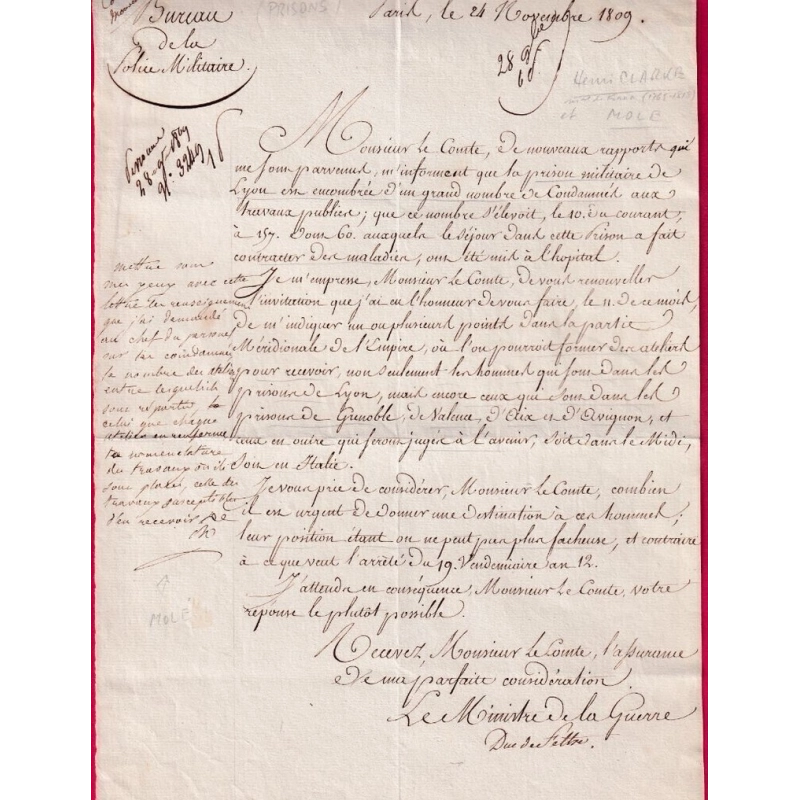 Bureau
de la
Police Militaire.
(PRISONS)
Paris, le 24 Novembre 1809.
28 9bre
Henri CLARKE
et MOLÉ
Personnel
28 9bre 1809
N°. 3249
Monsieur le Comte, de nouveaux rapports qui
me sont parvenus, m'informent que la prison militaire de
Lyon est encombrée d'un grand nombre de Condamnés aux
travaux publics; que ce nombre s'élevoit, le 10. du courant,
à 157. dont 60. auxquels le séjour dans cette Prison a fait
contracter des maladies, ont été mis à l'hopital.
Je m'empresse, Monsieur le Comte, de vous renouveller
l'invitation que j'ai eu l'honneur de vous faire, le 11. de ce mois,
de m'indiquer un ou plusieurs points dans la partie
Méridionale de l'Empire, où l'on pourroit former des ateliers
pour recevoir, non seulement les hommes qui sont dans les
prisons de Lyon, mais encore ceux qui sont dans les
prisons de Grenoble, de Valence, d'Aix et d'Avignon, et
ceux en outre qui seront jugés à l'avenir, soit dans le Midi,
soit en Italie.
Je vous prie de considérer, Monsieur le Comte, combien
il est urgent de donner une destination à ces hommes;
leur position étant on ne peut pas plus facheuse, et contraire
à ce que veut l'arrêté du 19. Vendemiaire an 12.
J'attends en conséquence, Monsieur le Comte, votre
réponse le plutôt possible.
Recevez, Monsieur le Comte, l'assurance
de ma parfaite considération.
Le Ministre de la Guerre
Duc de Feltre.
mettre sous
mes yeux avec cette
lettre les renseignemens
que j'ai demandé
au chef du personel
sur les condamnés
le nombre des ateliers
entre lesquels ils
sont repartis,
celui que chaque
atelier en renferme
la nomenclature
des travaux où ils
sont placés, celle des
travaux susceptibles
d'en recevoir
MOLÉ